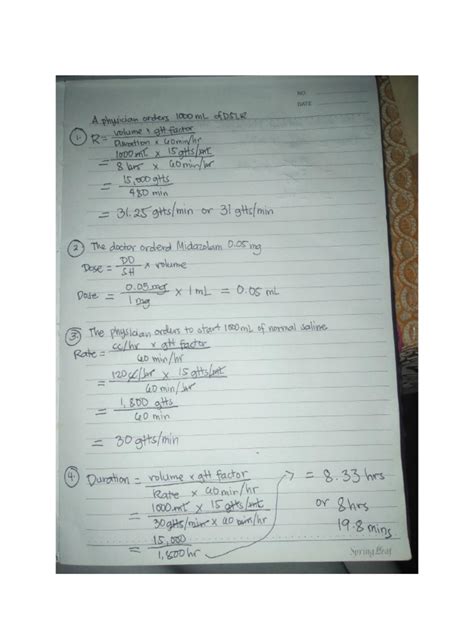 NO.
DATE
A physician orders 1000 mL of D5LR
1. R = volume x gtt factor
Duration x 60 min/hr
= 1000 mL x 15 gtts/mL
8 hrs x 60 min/hr
= 15,000 gtts
480 min
= 31.25 gtts/min or 31 gtts/min
2. The doctor orderd Midazolam 0.05 mg
Dose = DD x volume
SH
Dose = 0.05 mg x 1 mL = 0.05 mL
1 mg
3. The physician orders to start 1000 mL of normal saline
Rate = cc/hr x gtt factor
60 min/hr
= 120 cc/hr x 15 gtts/mL
60 min/hr
= 1,800 gtts
60 min
= 30 gtts/min
4. Duration = volume x gtt factor
Rate x 60 min/hr
= 1000 mL x 15 gtts/mL
30 gtts/min x 60 min/hr
= 15,000
1,800 hr
= 8.33 hrs
or 8 hrs
19.8 mins
Spring Leaf